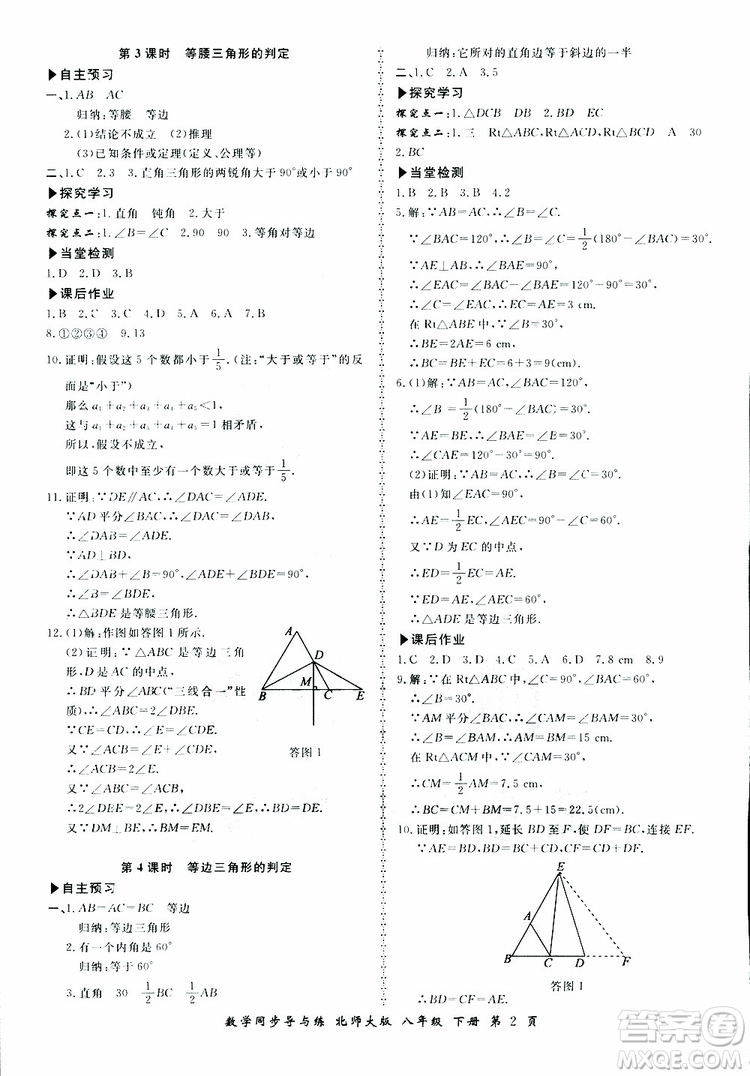 第3课时 等腰三角形的判定
▶自主预习
一、1.AB AC
归纳:等腰 等边
2.(1)结论不成立 (2)推理
(3)已知条件或定理(定义、公理等)
二、1.C 2.3 3.直角三角形的两锐角大于90°或小于90°
▶探究学习
探究点一:1.直角 钝角 2.大于
探究点二:1.∠B=∠C 2.90 90 3.等角对等边
▶当堂检测
1.D 2.D 3.B
▶课后作业
1.B 2.C 3.D 4.C 5.B 6.B 7.C
8.①②③④ 9.13
10.证明:假设这5个数都小于1/5.(注:“大于或等于”的反
面是“小于”)
那么a₁+a₂+a₃+a₄+a₅<1,
这与a₁+a₂+a₃+a₄+a₅=1相矛盾,
所以,假设不成立,
即这5个数中至少有一个数大于或等于1/5.
11.证明:∵DE∥AC,∴∠DAC=∠ADE.
∵AD平分∠BAC,∴∠DAC=∠DAB,
∴∠DAB=∠ADE.
∵AD⊥BD,
∴∠DAB+∠B=90°,∠ADE+∠BDE=90°,
∴∠B=∠BDE,
∴△BDE是等腰三角形.
12.(1)解:作图如答图1所示.
(2)证明:∵△ABC是等边三角
形,D是AC的中点,
∴BD平分∠ABC(“三线合一”性
质),
∴∠ABC=2∠DBE.
∵CE=CD,∴∠CDE=∠E.
又∵∠ACB=∠CDE+∠E,
∴∠ACB=2∠E.
又∵∠ABC=∠ACB,
∴2∠DBE=2∠E,∴∠DBE=∠E,∴BD=DE.
又∵DM⊥BE,∴BM=EM.
A
D
M
B
C
E
答图1
第4课时 等边三角形的判定
▶自主预习
一、1.AB=AC=BC 等边
归纳:等边三角形
2.有一个内角是60°
归纳:等于60°
3.直角 30 1/2BC 1/2BC
归纳:它所对的直角边等于斜边的一半
二、1.C 2.A 3.5
▶探究学习
探究点一:1.△DCB DB EC
探究点二:1.三 Rt△ABC Rt△BCD A 30
2.BC
▶当堂检测
1.B 2.B 3.B 4.2
5.解:∵AB=AC,∴∠B=∠C.
∵∠BAC=120°,∴∠B=∠C=1/2(180°-∠BAC)=30°.
∵AE⊥AB,∴∠BAE=90°,
∴∠EAC=30°=∠C,∴AE=CE=3 cm.
在Rt△ABE中,∵∠B=30°,
∴BE=2AE=6 cm,
∴BC=BE+EC=6+3=9(cm).
6.(1)解:∵AB=AC,∠BAC=120°,
∴∠B=1/2(180°-∠BAC)=30°.
又∵AE⊥BC,∴∠AEB=90°,
∴∠BAE=90°-∠B=60°,
∴∠CAE=120°-30°-60°=30°.
(2)证明:∵AB=AC,∴∠C=∠B=30°.
由(1)知∠AEC=90°,
∴AE=1/2EC,∠AEC=90°-∠C=60°.
又∵D为EC的中点,
∴ED=1/2EC=AE,
∴△AED是等边三角形.
▶课后作业
1.C 2.D 3.C 4.B 5.C 6.D 7.8 cm 8.9
9.解:∵在Rt△ABC中,∠C=90°,∠BAC=60°,
∴∠B=30°.
∵AM平分∠BAC,∴∠CAM=∠BAM=30°,
∴∠B=∠BAM,∴AM=BM=15 cm.
在Rt△ACM中,∵∠CAM=30°,
∴CM=1/2AM=7.5 cm,
∴BC=CM+BM=7.5+15=22.5(cm).
10.证明:如答图1,延长BD至F,使DF=BC,连接EF.
∵BC=DF,∴BD=CF.
E
A
B
C
D
F
答图1
数学同步导与练 北师大版 八年级 下册 第2页
答案圈
MXQE.COM